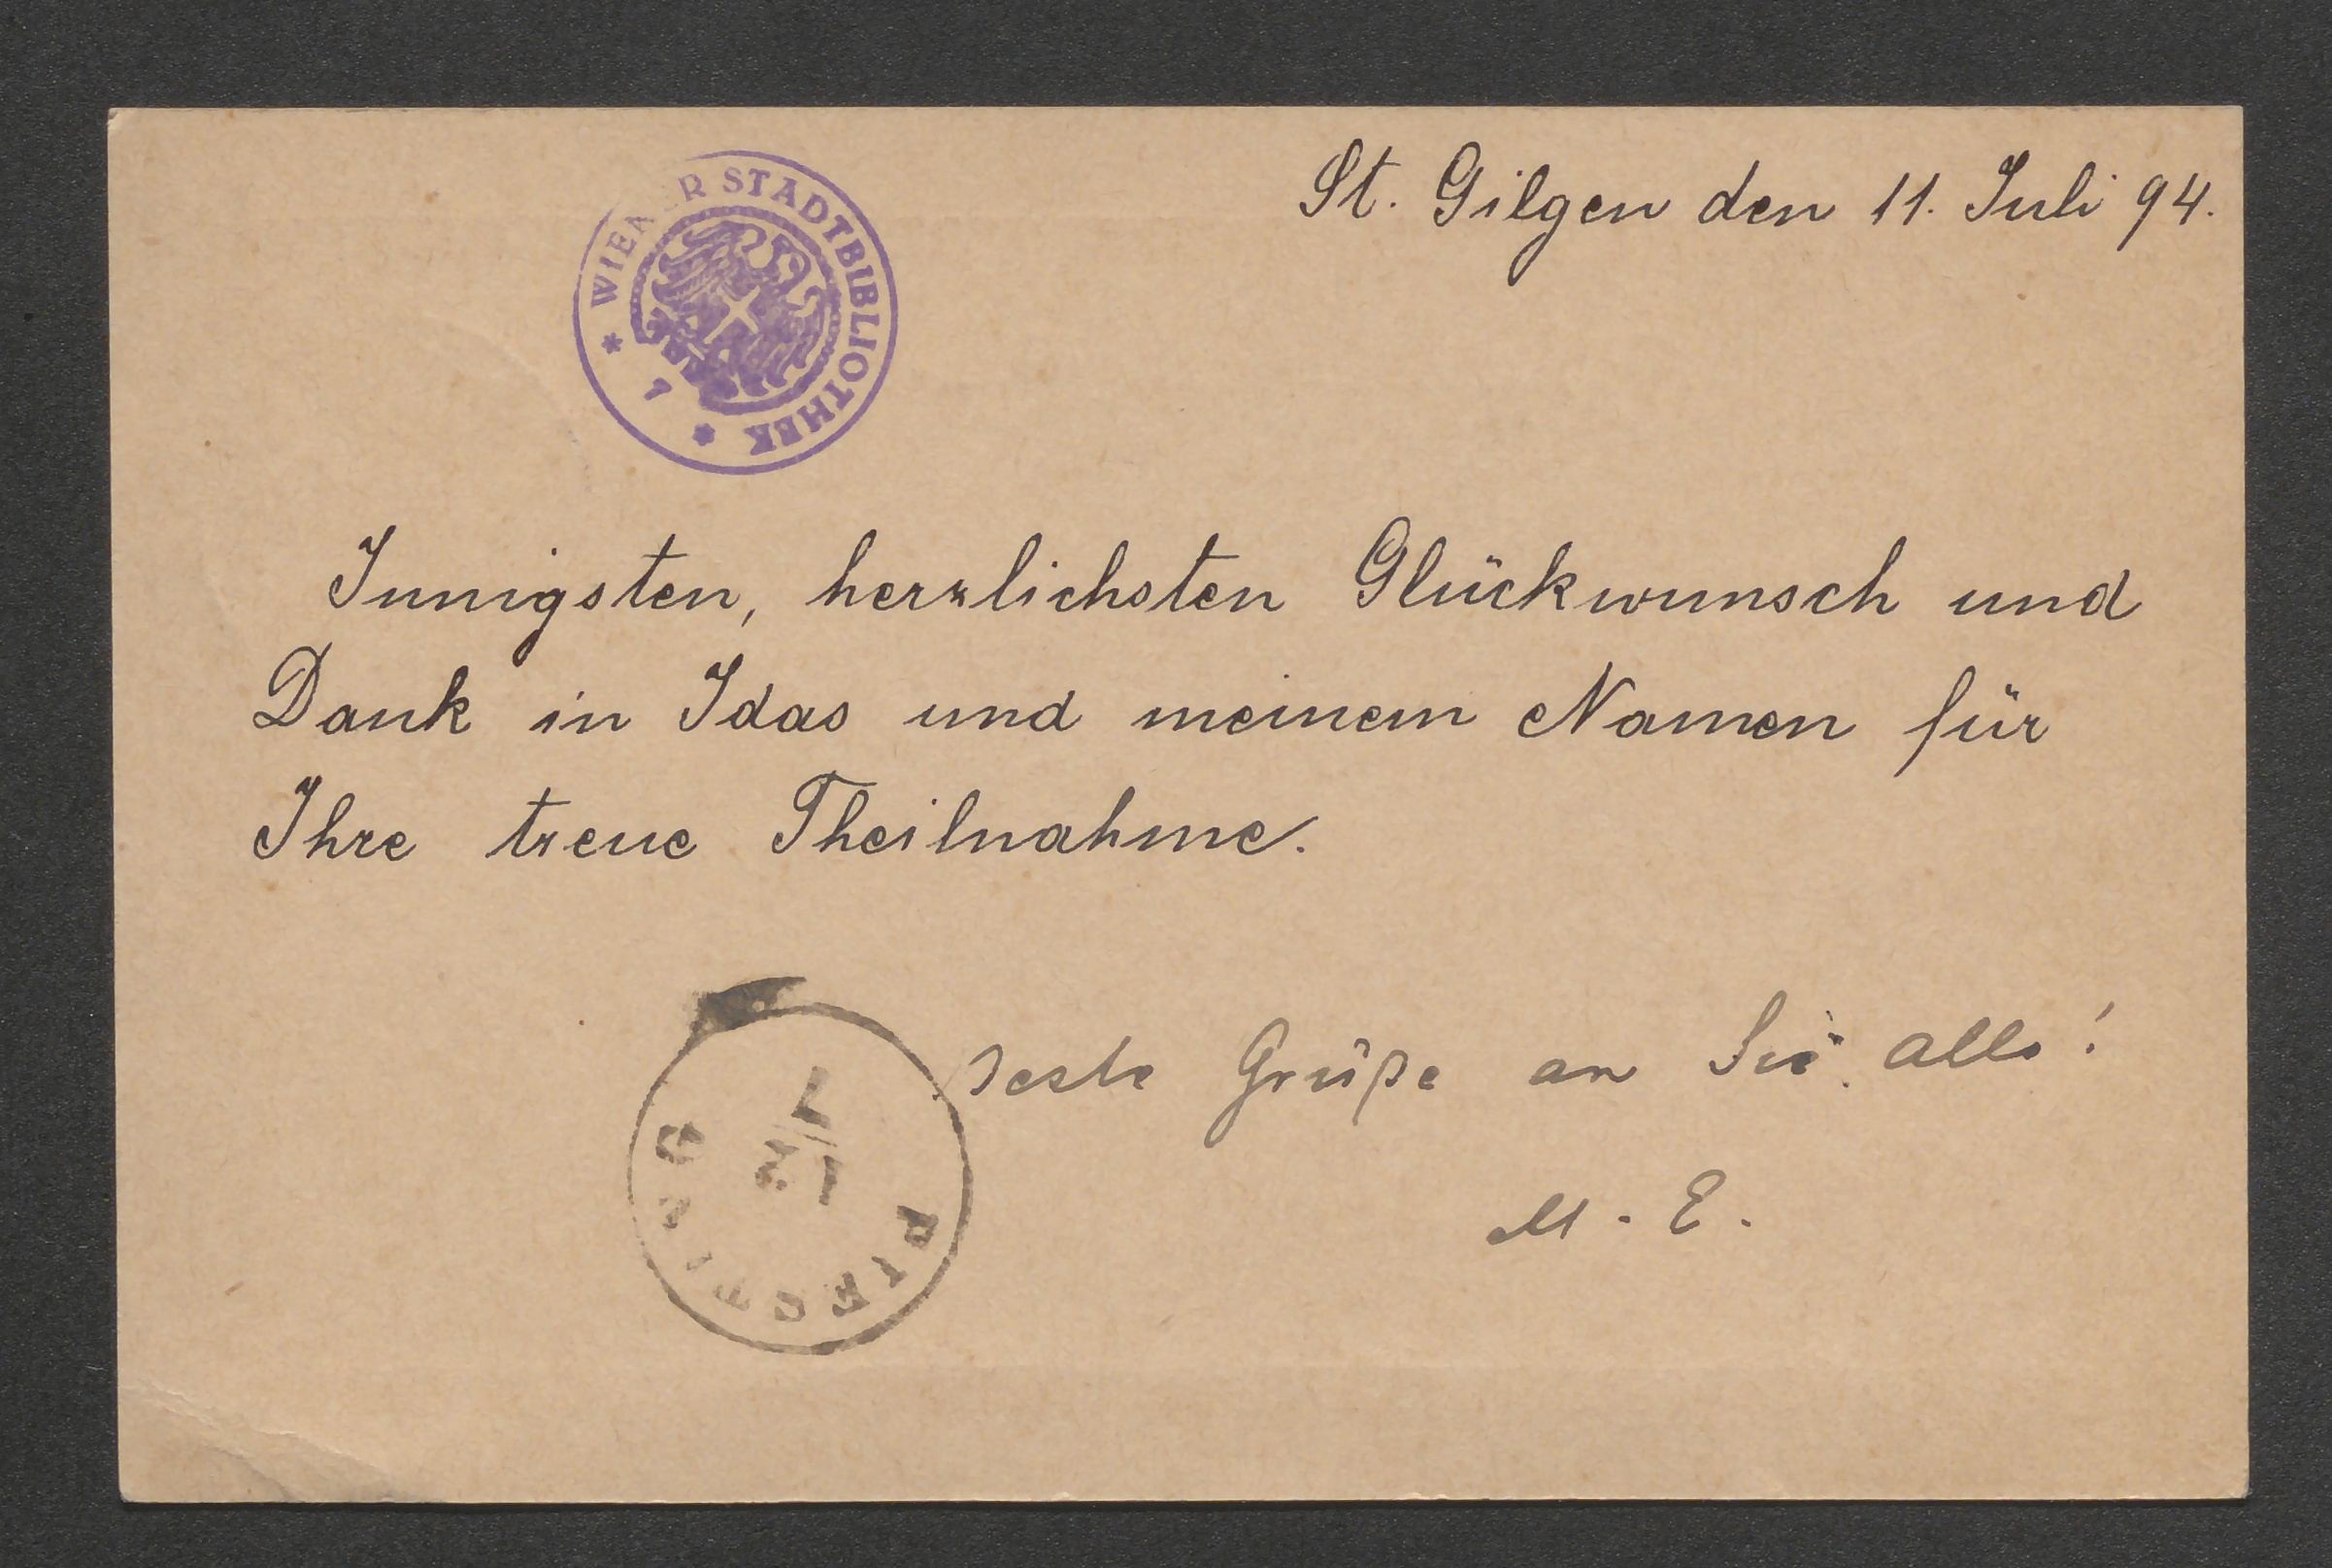 WIENER STADTBIBLIOTHEK
* 7 *
St. Gilgen den 11. Juli 94.
Innigsten, herzlichsten Glückwunsch und
Dank in Idas und meinem Namen für
Ihre treue Theilnahme.
Beste Grüße an Sie alle!
M. E.